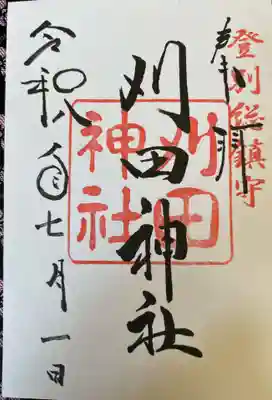 登別総鎮守
奉拝
刈田神社
刈田
神社
令和八年七月一日